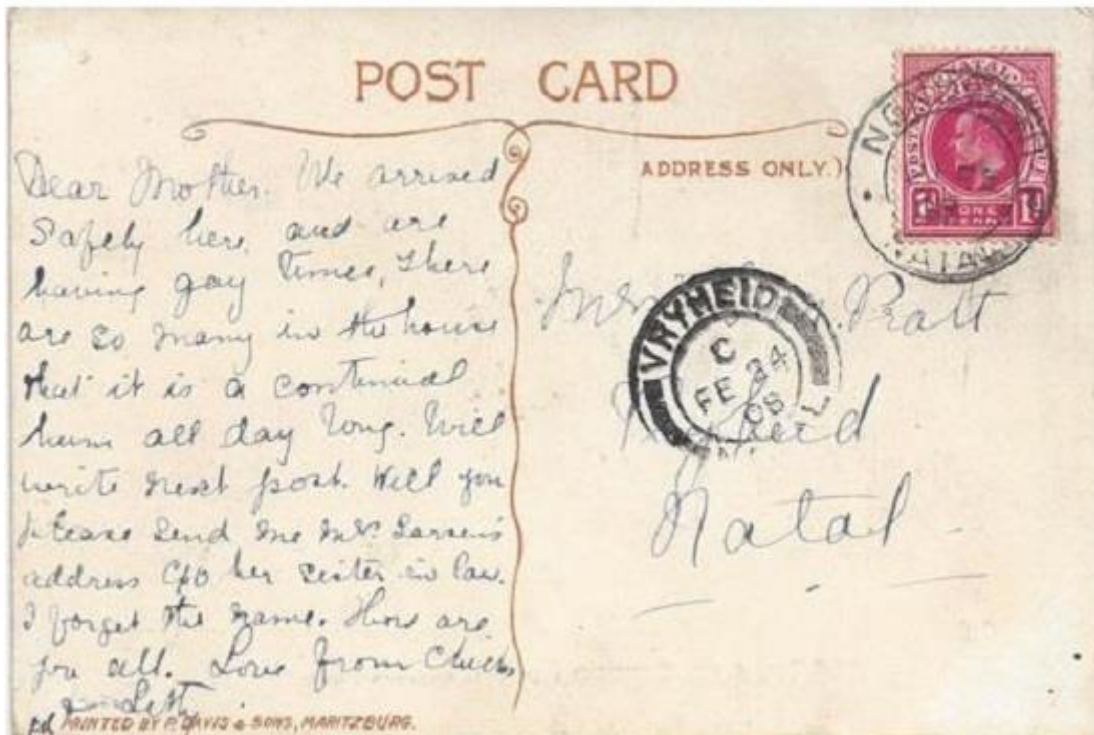 POST CARD
ADDRESS ONLY.)
Dear Mother. We arrived
safely here and are
having gay times, There
are so many in the house
that it is a continual
hum all day long. Will
write next post. Will you
please send me Mrs Larsen's
address c/o her sister in law.
I forget the name. How are
you all. Love from
PRINTED BY P. DAVIS & SONS, MARITZBURG.
ONE PENNY
NATAL
VRYHEID
C
FE 24
08
NATAL
Pratt
Vryheid
Natal